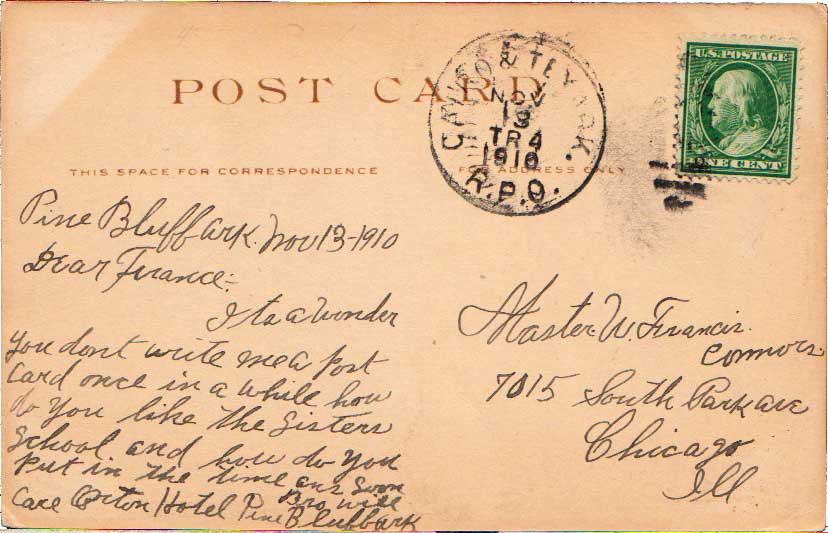 POST CARD
NOV
13
TR 4
1910
R.P.O.
U.S. POSTAGE
ONE CENT
THIS SPACE FOR CORRESPONDENCE
FOR ADDRESS ONLY
Pine Bluff Ark. Nov 13-1910
Dear France:-
Its a Wonder
You dont write me a Post
Card once in a while how
do You like the Sisters
School and how do You
Put in the time ans Soon
Bro Will
Care Orton Hotel Pine Bluff Ark
Master. W. Francis.
Connors
7015 South Park ave
Chicago
Ill